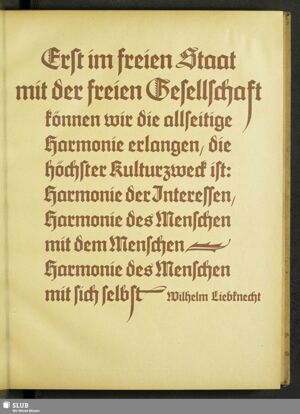 Erst im freien Staat
mit der freien Gesellschaft
können wir die allseitige
Harmonie erlangen, die
höchster Kulturzweck ist:
Harmonie der Interessen,
Harmonie des Menschen
mit dem Menschen
Harmonie des Menschen
mit sich selbst Wilhelm Liebknecht
SLUB
Wir führen Wissen.